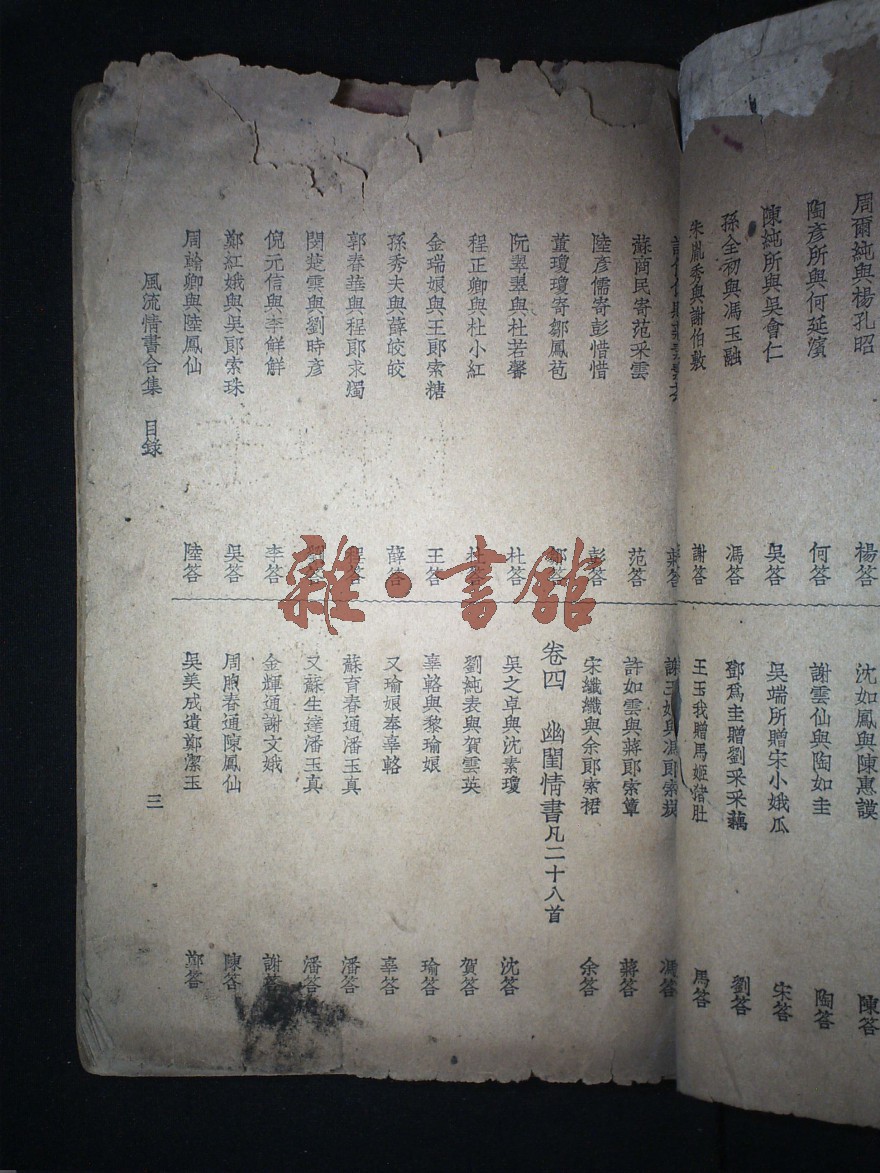 周爾純與楊孔昭 楊答
陶彥所與何延濱 何答
陳純所與吳會仁 吳答
孫全初與馮玉融 馮答
朱胤秀與謝伯敷 謝答
沈如鳳與陳惠謨 陳答
謝雲仙與陶如圭 陶答
吳端所贈宋小娥瓜 宋答
鄧爲圭贈劉采采藕 劉答
王玉我贈馬姬猪肚 馬答
蘇商民寄范采雲 范答
陸彥儒寄彭惜惜 彭答
董瓊瓊寄鄒鳳苞 鄒答
阮翠翠與杜若馨 杜答
程正卿與杜小紅 杜答
金瑞娘與王郞索糖 王答
孫秀夫與薛皎皎 薛答
郭春華與程郞求燭 程答
閔楚雲與劉時彥 答
倪元信與李鮮鮮 李答
鄭紅娥與吳郞索珠 吳答
周翰卿與陸鳳仙 陸答
王娘與馮郞索 馮答
許如雲與蔣郞索簟 蔣答
宋纖纖與余郞索裙 余答
卷四 幽閨情書凡二十八首
吳之卓與沈素瓊 沈答
劉純表與賀雲英 賀答
辜輅與黎瑜娘 瑜答
又瑜娘奉辜輅 辜答
蘇育春通潘玉真 潘答
又蘇生達潘玉真 潘答
金輝通謝文娥 謝答
周煦春通陳鳳仙 陳答
吳美成遺鄭潔玉 鄭答
風流情書合集 目錄 三
雜·書館